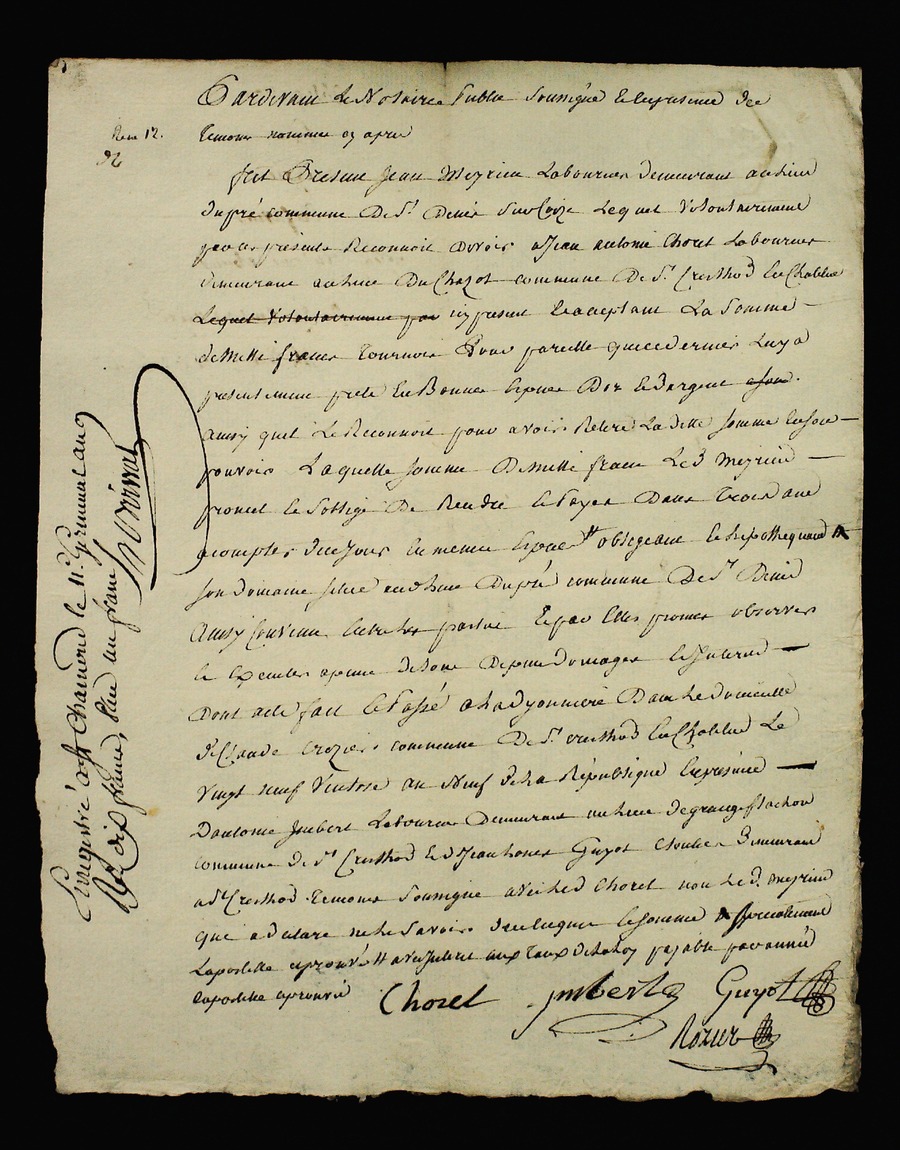 Pardevant Le Notaire Public Soussigné Et En presence des
Temoins nommés cy apres
fut Present Jean Meyrieu Laboureur demeurant au lieu
Dupré commune De St Denis Sur Coize Lequel Volontairement
par ces presentes Reconnoit devoir a Jean antoine Choret Laboureur
demeurant au lieu Du Chazot commune De St Cristhod En Chatelus
Lequel Volontairement par icy present Et acceptant La Somme
de Mille francs Tournois Pour pareille que ce dernier Luy a
presentement preté En Bonnes Especes D'or et D'argent
Ainsy quil Le Reconnoit pour avoir Retiré La ditte somme En son
pouvoir Laquelle somme De Mille francs Le d Meyrieu
promet Et s'oblige De Rendre Et Payer Dans Trois ans
a compter de ce Jour En meme Espece # obligeant Et hipothequant
son Domaine situé au lieu Dupré commune De St Denis
Ainsy Convenu Entre Les parties Et par Elles promis observer
Et Executer a peine de tous Depens Domages Et Interets
Dont acte fait Et Passé a La dyonniere Dans Le domicille
de Claude crozier commune De St cristhod En Chatelus Le
Vingt neuf Ventose an Neuf de La République En presence
D'antoine Imbert Laboureur Demeurant au lieu de grange flachon
commune de St Cristhod Et de Jean Guyot Demeurant
a St Cristhod Temoins Soussignés avec Led Choret non Le d. meyrieu
que a declaré ne Le Savoir de ce Enquis Et Somme
Lapostille aprouvée # avec Interet aux Taux de La Loy payable par année
Lapostille aprouvée
Choret Imbert Guyot
Rozier
Enregistré à St Chamond le 11 Germinal an 9
Reçu dix francs, plus un franc